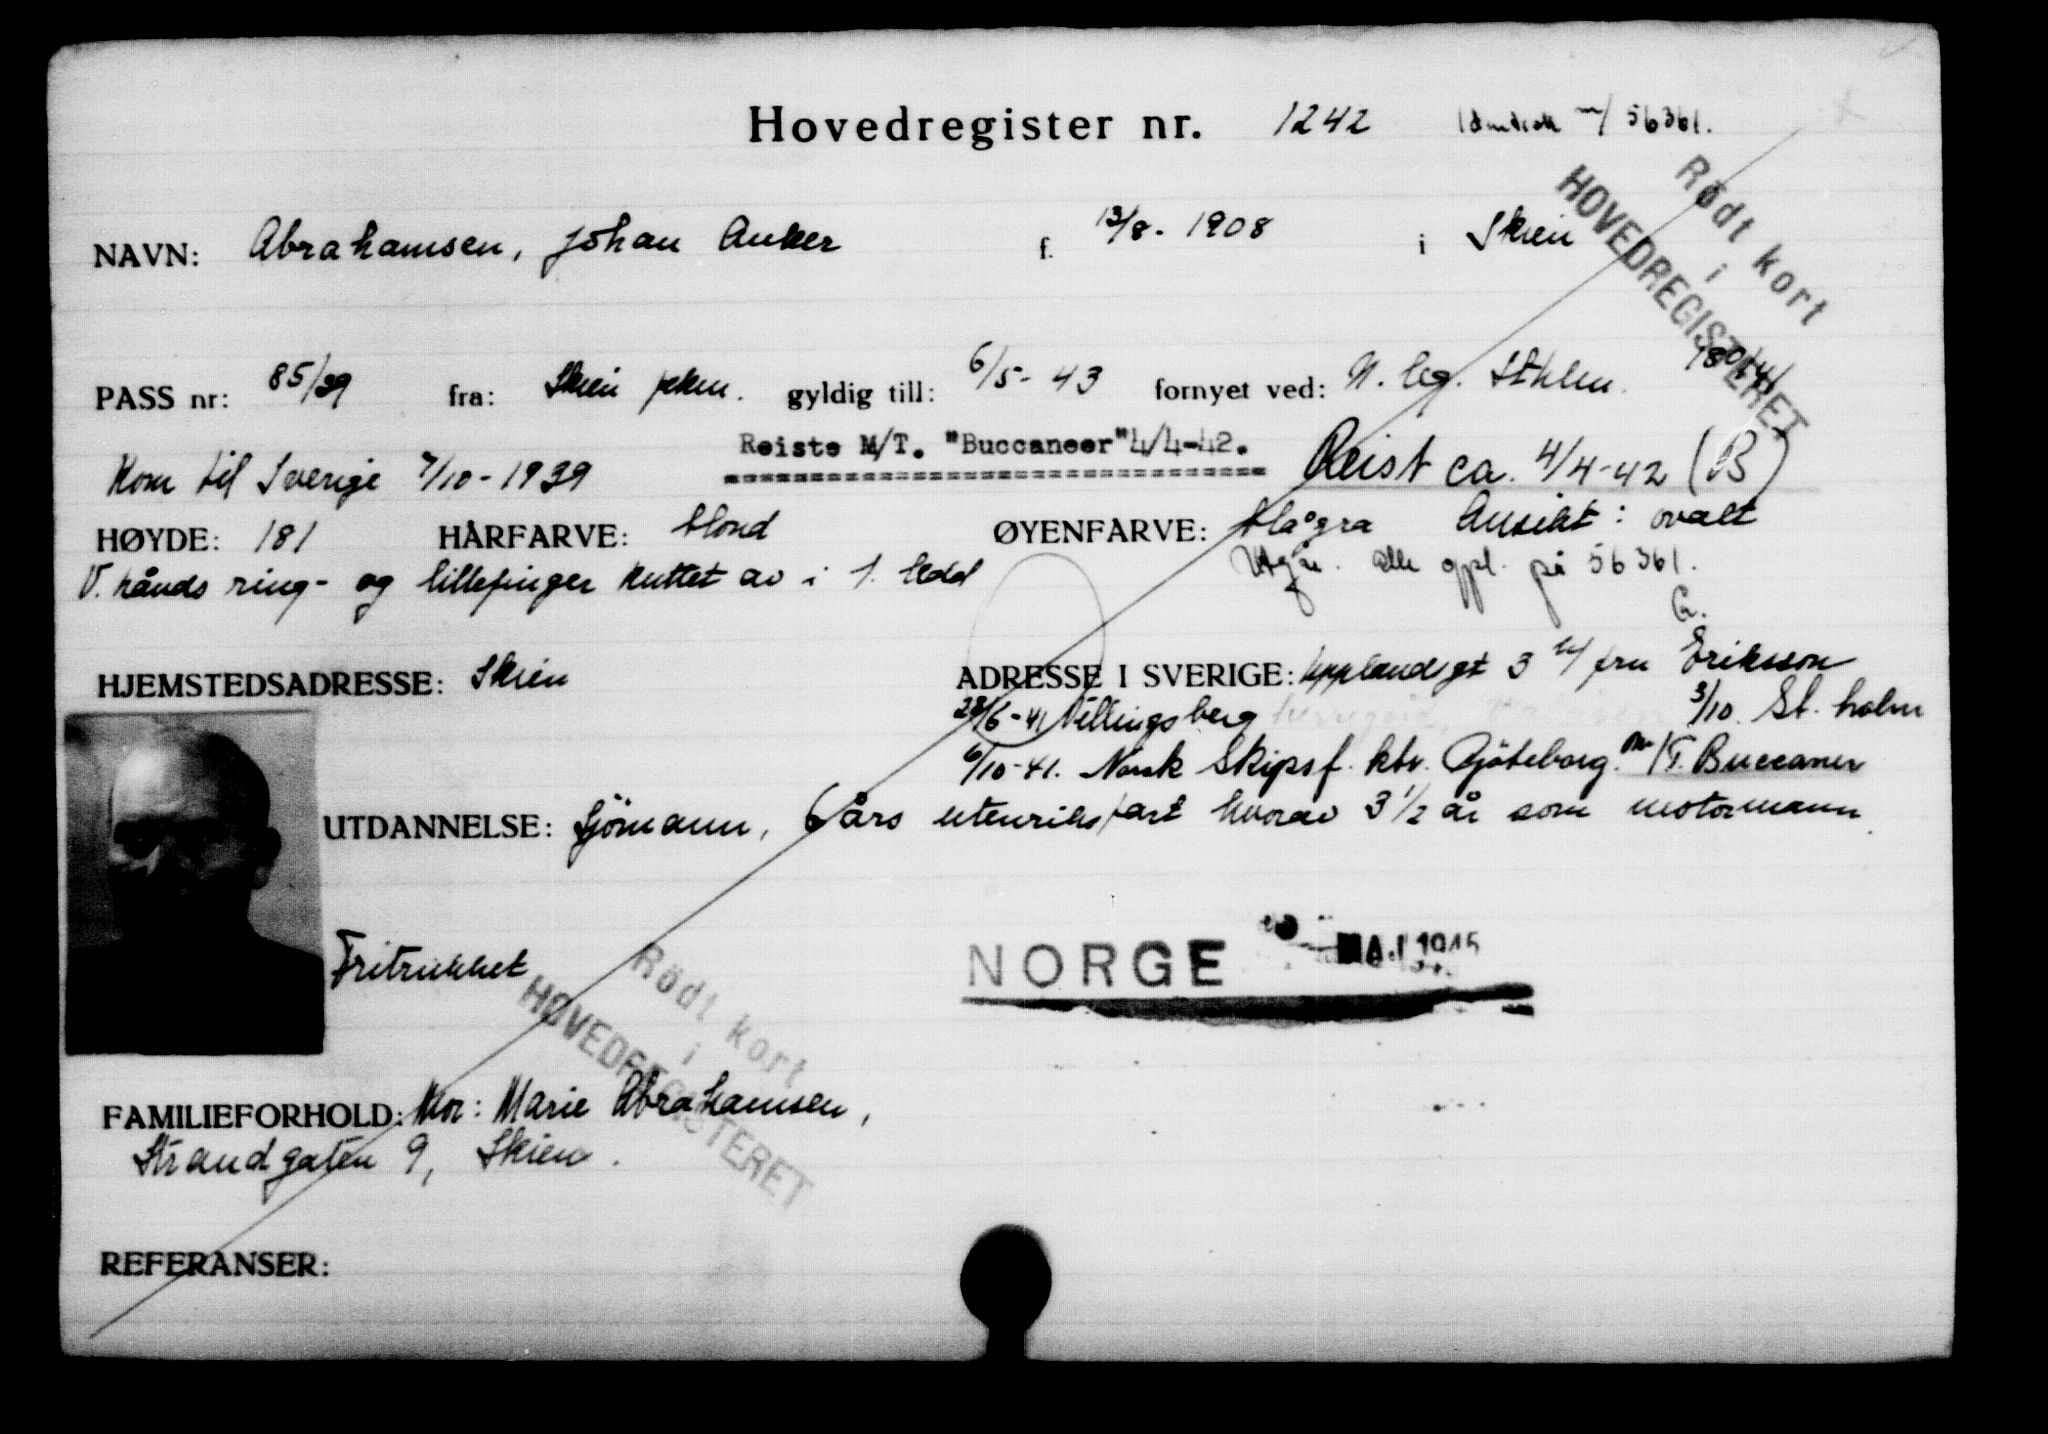 Hovedregister nr. 1242 Identisk m/ 56361.
Rödt kort
i
HOVEDREGISTERET
NAVN: Abrahamsen, Johan Anker f. 13/8. 1908 i Skien
PASS nr: 85/39 fra: Skien gyldig till: 6/5- 43 fornyet ved: N. leg. Sthlm.
Reiste M/T. "Buccaneer" 4/4-42.
Kom til Sverige 7/10-1939 Reist ca. 4/4-42 (B)
HØYDE: 181 HÅRFARVE: blond ØYENFARVE: blågrå Ansikt: ovalt
V. hånds ring- og lillefinger kuttet av i 1. ledd
Utgår. alle oppl. på 56361.
HJEMSTEDSADRESSE: Skien ADRESSE I SVERIGE: Upplandsgt 3 fru Eriksson
28/6-41 Villingsberg 3/10. St. holm
6/10-41. Norsk Skipsf. ktr. Gjöteborg. M/T. Buccaneer
UTDANNELSE: Sjömann, 6 års utenriksfart hvorav 3 1/2 år som motormann.
Fritrukket
NORGE MAJ 1945
Rödt kort
i
HOVEDREGISTERET
FAMILIEFORHOLD: Mor: Marie Abrahamsen,
Strandgaten 9, Skien.
REFERANSER: